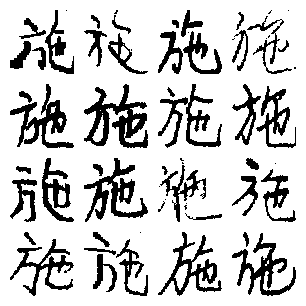 施施施施
施施施施
施施施施
施施施施